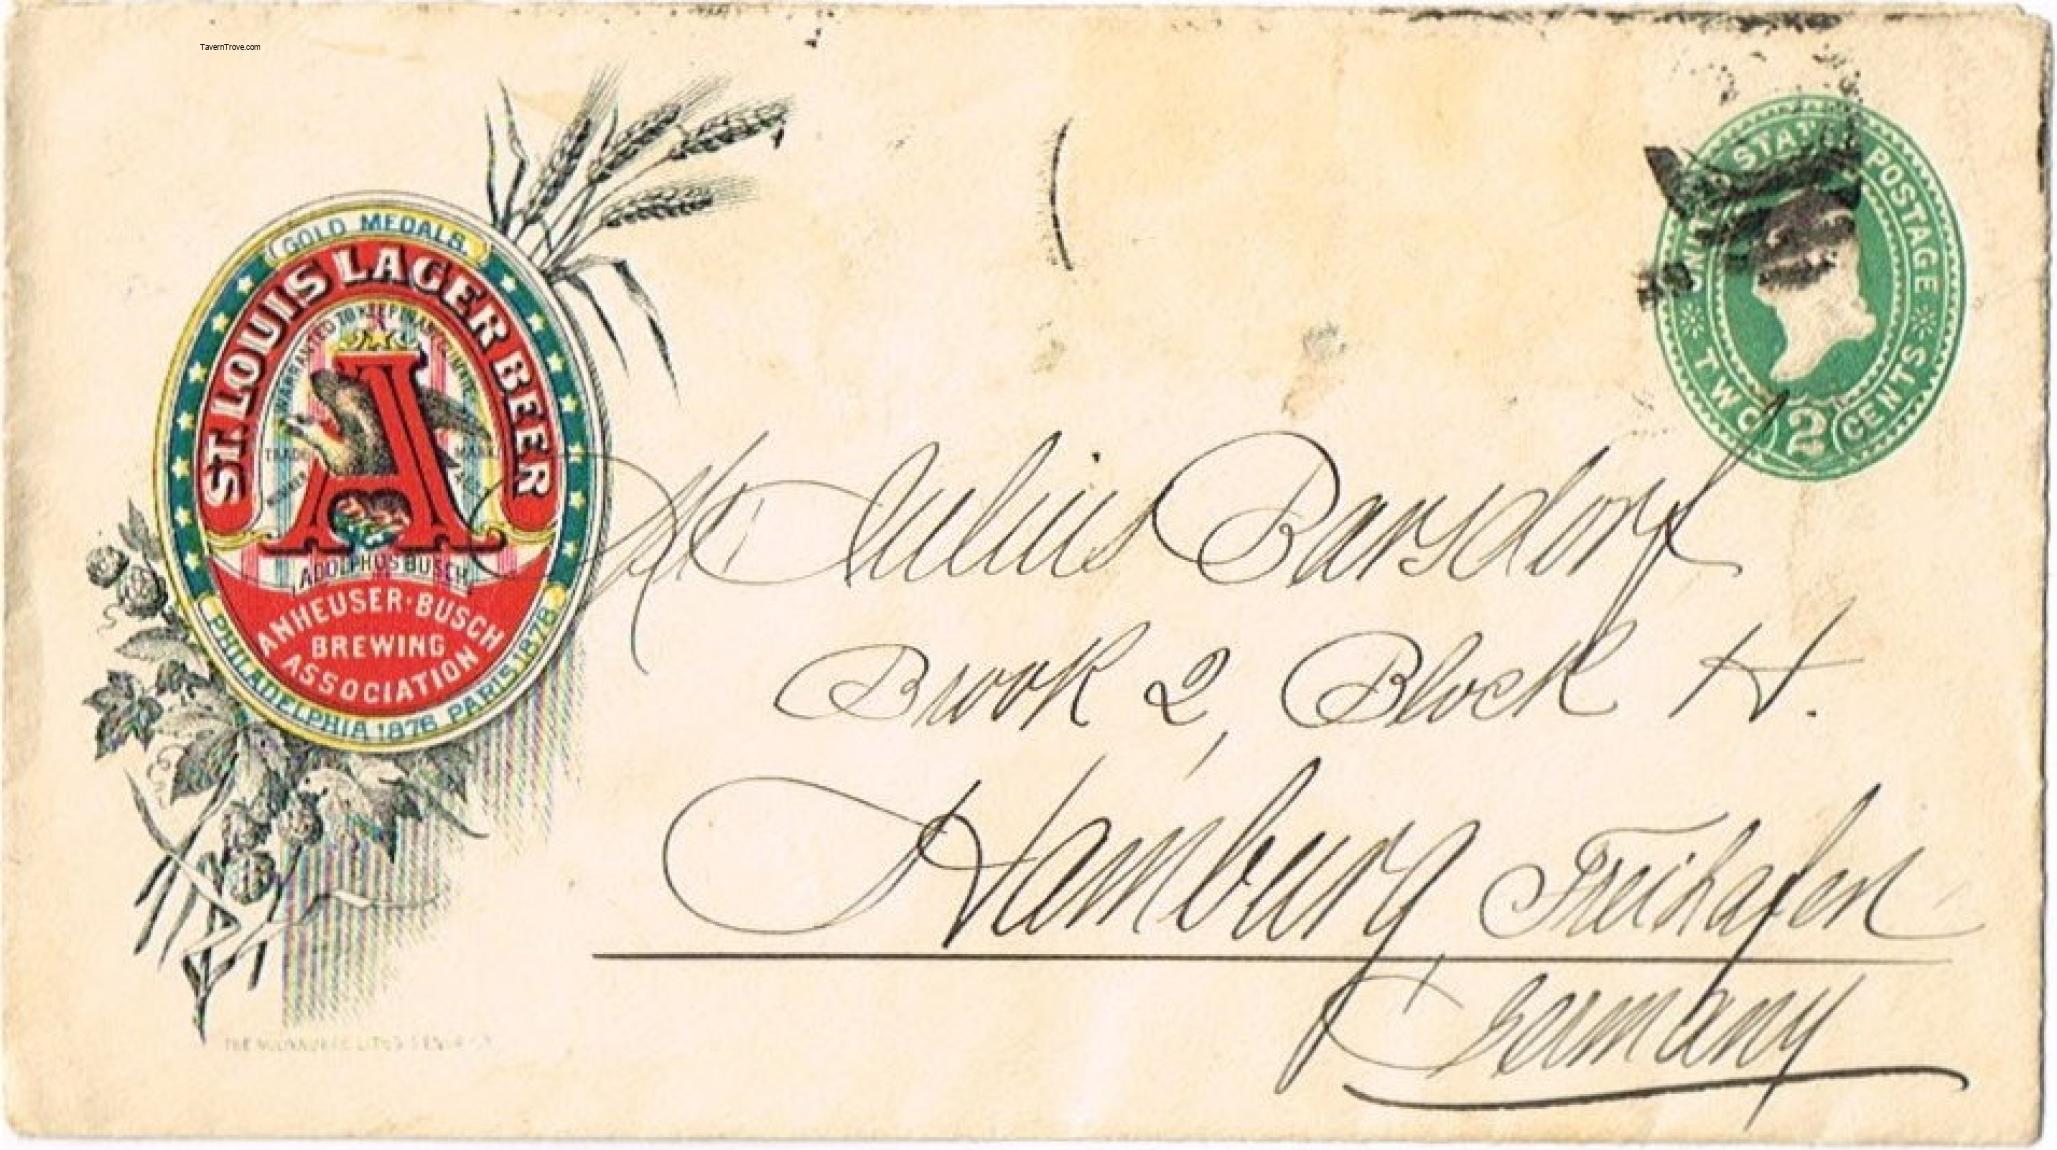 TavernTrove.com
GOLD MEDALS.
ST. LOUIS LAGER BEER
WARRANTED TO KEEP IN ANY CLIMATE
TRADE MARK
A
ADOLPHUS BUSCH
ANHEUSER-BUSCH
BREWING
ASSOCIATION
PHILADELPHIA 1876 PARIS 1878
UNITED STATES POSTAGE
TWO 2 CENTS
Mr Julius Barsdorf
Brook 2, Block H.
Hamburg Freihafen
Germany
THE MILWAUKEE LITHO & ENGR